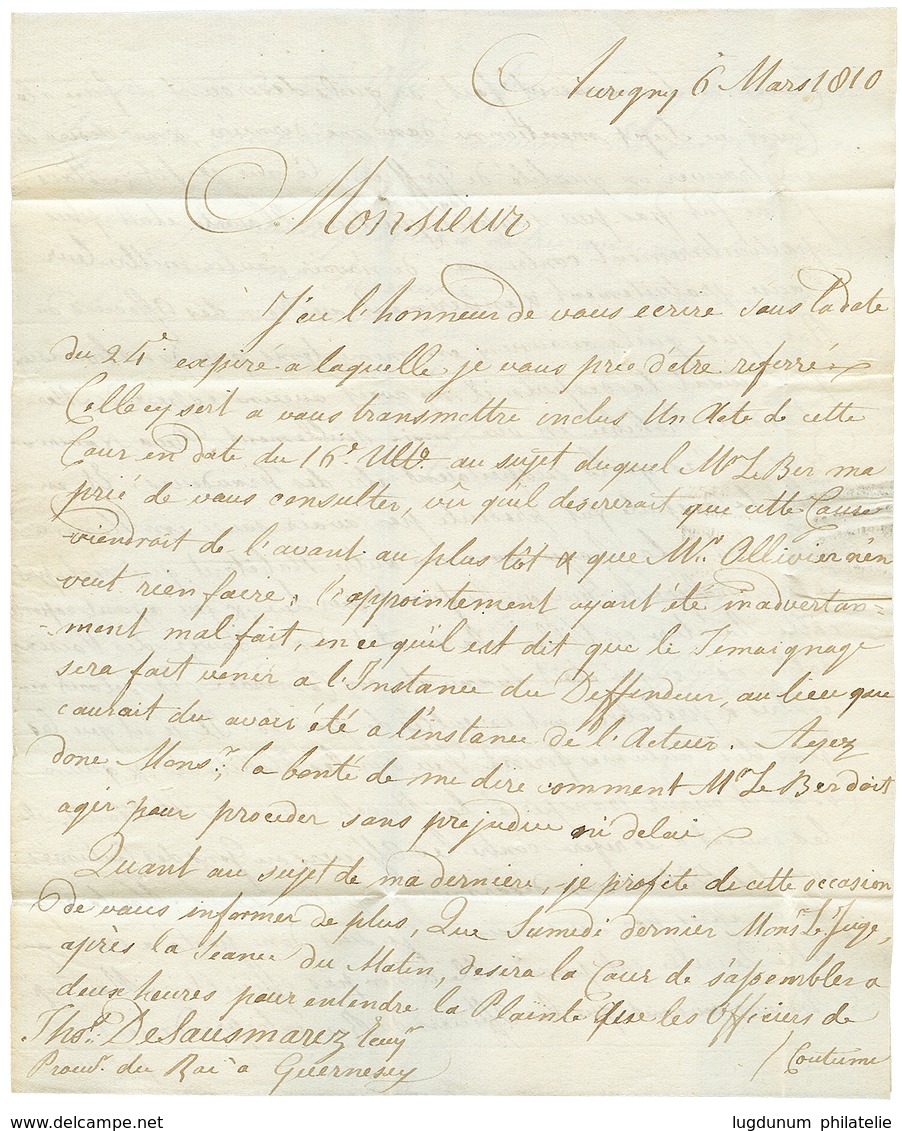 Auregny 6 Mars 1810
Monsieur
J'eu l'honneur de vous ecrire sous la date
du 24e expiré a laquelle je vous prie d'etre referré
Celle cy sert a vous transmettre inclus Un Acte de cette
Cour en date du 16e Ulto. au sujet duquel Mr Le Ber ma
prié de vous consulter, vu quil desirerait que cette Cause
viendrait de l'avant au plus tôt & que Mr. Ollivier n'en
veut rien faire, l'appointement ayant été inadvertan=
=ment mal fait, en ce qu'il est dit que le Temoignage
sera fait venir a l'Instance du Deffendeur, au lieu que
c'aurait du avoir été a l'instance de l'Acteur. Ayez
donc Monsr., la bonté de me dire comment Mr Le Ber doit
agir pour proceder sans prejudice ni delai
Quant au sujet de ma derniere, je profite de cette occasion
de vous informer de plus, Que Samedi dernier Monsr Le Juge,
après la Seance du Matin, desira la Cour de s'assembler a
deux heures pour entendre la Plainte que les Officiers de
Thos. DeSausmarez Ecuyr
/ Coutume
Procur. du Roi a Guernesey
www.delcampe.net
lugdunum philatelie